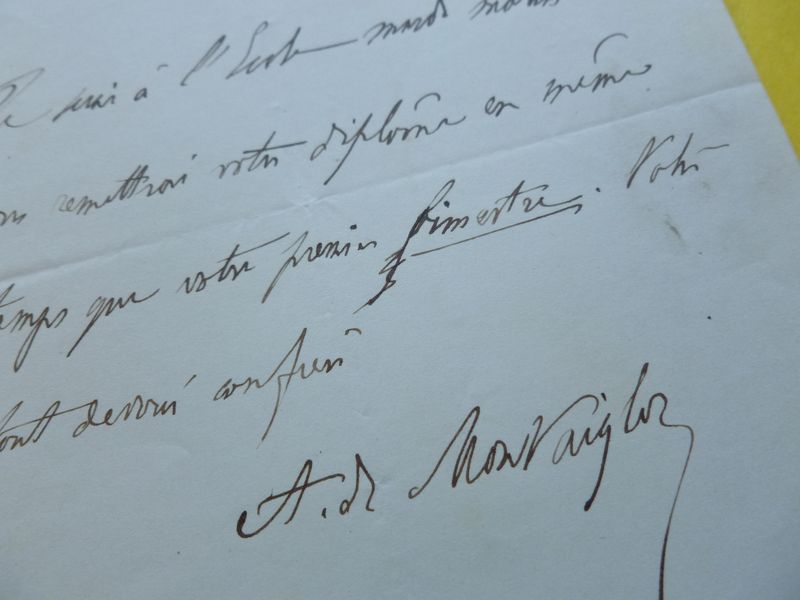 Je serai à l'Ecole mardi matin
vous remettrai votre diplôme en même
temps que votre premier bimestre. Votre
tout dévoué confrère
A. de Montaiglon